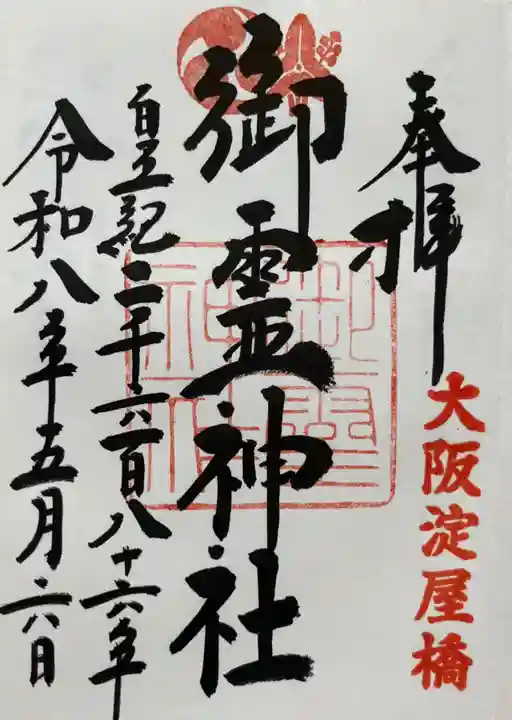 奉拝
大阪淀屋橋
御霊神社
皇記二千六百八十六年
令和八年五月六日
御霊神社